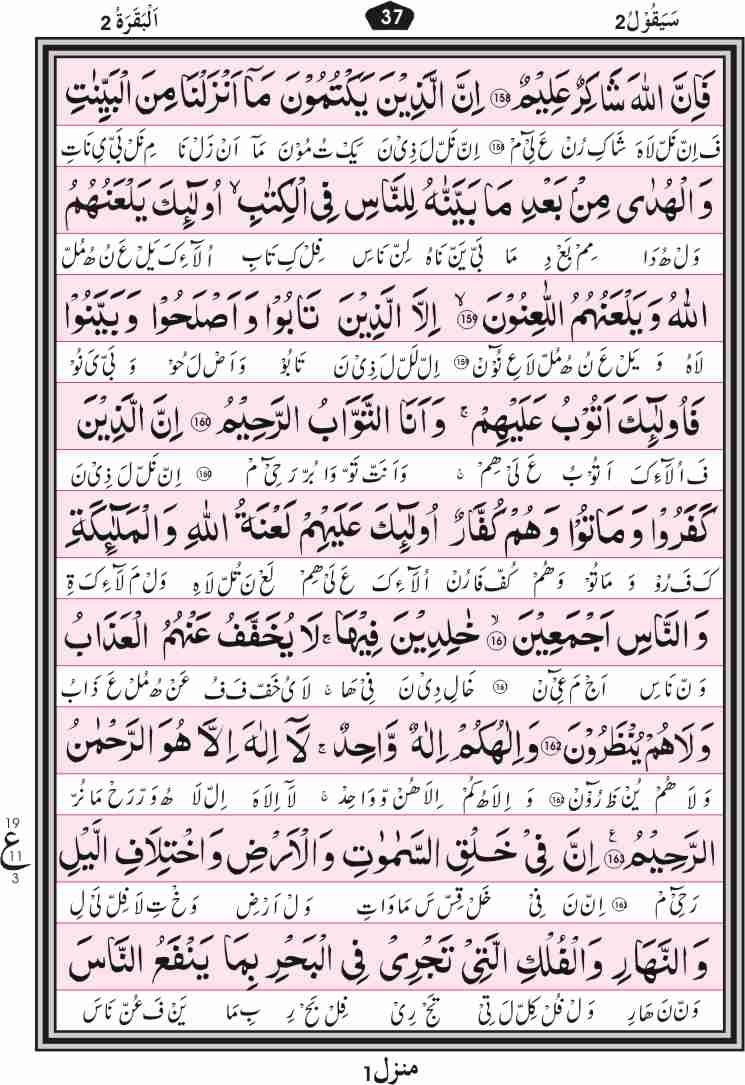 سَيَقُوْلُ2 37 اَلْبَقَرَةُ 2
فَاِنَّ اللّٰهَ شَاكِرٌ عَلِيْمٌ 158 اِنَّ الَّذِيْنَ يَكْتُمُوْنَ مَآ اَنْزَلْنَا مِنَ الْبَيِّنٰتِ
فَ اِنّ نَلّ لَاهَ شَاكِ رُنْ عَ لِىْٓ مْ 158 اِنّ نَلّ لَ ذِىْ نَ يَكْ تُ مُوْنَ مَآ اَنْ زَلْ نَا مِ نَلْ بَىِّ ىِ نَاتِ
وَالْهُدٰى مِنْۢ بَعْدِ مَا بَيَّنّٰهُ لِلنَّاسِ فِى الْكِتٰبِ ۙ اُولٰٓئِكَ يَلْعَنُهُمُ
وَلْ هُ دَا مِمْ بَعْ دِ مَا بَىْ يَنّ نَاهُ لِنّ نَاسِ فِلْ كِ تَابِ اُ لَآءِ كَ يَلْ عَ نُ هُ مُلّ
اللّٰهُ وَيَلْعَنُهُمُ اللّٰعِنُوْنَ ۙ 159 اِلَّا الَّذِيْنَ تَابُوْا وَاَصْلَحُوْا وَبَيَّنُوْا
لَاهُ وَ يَلْ عَ نُ هُ مُلّ لَا عِ نُوْٓنْ 159 اِلّ لَلّ لَ ذِىْ نَ تَا بُوْ وَ اَصْ لَ حُوْ وَ بَىْ ىَ نُوْ
فَاُولٰٓئِكَ اَتُوْبُ عَلَيْهِمْ ۚ وَاَنَا التَّوَّابُ الرَّحِيْمُ 160 اِنَّ الَّذِيْنَ
فَ اُ لَآءِ كَ اَ تُوْ بُ عَ لَىْ هِمْ ۚ وَ اَنَتْ تَوّ وَا بُرّ رَ حِىْٓ مْ 160 اِنّ نَلّ لَ ذِىْ نَ
كَفَرُوْا وَمَاتُوْا وَهُمْ كُفَّارٌ اُولٰٓئِكَ عَلَيْهِمْ لَعْنَةُ اللّٰهِ وَالْمَلٰٓئِكَةِ
كَ فَ رُوْ وَ مَا تُوْ وَ هُمْ كُفّ فَا رُنْ اُ لَآءِ كَ عَ لَىْ هِمْ لَعْ نَ تُلّ لَاهِ وَلْ مَ لَآءِ كَ ةِ
وَالنَّاسِ اَجْمَعِيْنَ ۙ 16 خٰلِدِيْنَ فِيْهَا ۚ لَا يُخَفَّفُ عَنْهُمُ الْعَذَابُ
وَ نّ نَاسِ اَجْ مَ عِىْٓ نْ 16 خَالِ دِىْ نَ فِىْ هَا ۚ لَا ىُ خَفّ فَ فُ عَنْ هُ مُلْ عَ ذَابُ
وَلَا هُمْ يُنْظَرُوْنَ 162 وَاِلٰهُكُمْ اِلٰهٌ وَّاحِدٌ ۚ لَآ اِلٰهَ اِلَّا هُوَ الرَّحْمٰنُ
وَ لَا هُمْ يُنْ ظَ رُوْٓنْ 162 وَ اِ لَاهُ كُمْ اِلَاهُنْ وّ وَاحِ دْ ۚ لَآ اِلَاهَ اِلّ لَا هُ وَرّ رَحْ مَا نُرّ
الرَّحِيْمُ 163 اِنَّ فِىْ خَلْقِ السَّمٰوٰتِ وَالْاَرْضِ وَاخْتِلَافِ الَّيْلِ
رَ حِىْٓ مْ 16 اِنّ نَ فِىْ خَلْ قِسّ سَ مَا وَاتِ وَلْ اَرْضِ وَخْ تِ لَا فِلّ لَىْ لِ
19
ع
11
3
وَالنَّهَارِ وَالْفُلْكِ الَّتِىْ تَجْرِىْ فِى الْبَحْرِ بِمَا يَنْفَعُ النَّاسَ
وَنّ نَ هَارِ وَ لْ فُلْ كِلّ لَ تِىْ تَجْ رِىْ فِلْ بَحْ رِ بِ مَا يَنْ فَ عُنّ نَاسَ
منزل1